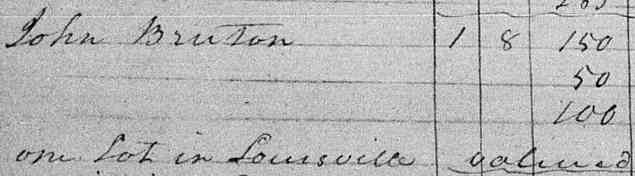 John Bruton 1 8 150
50
100
one Lot in Louisville valued